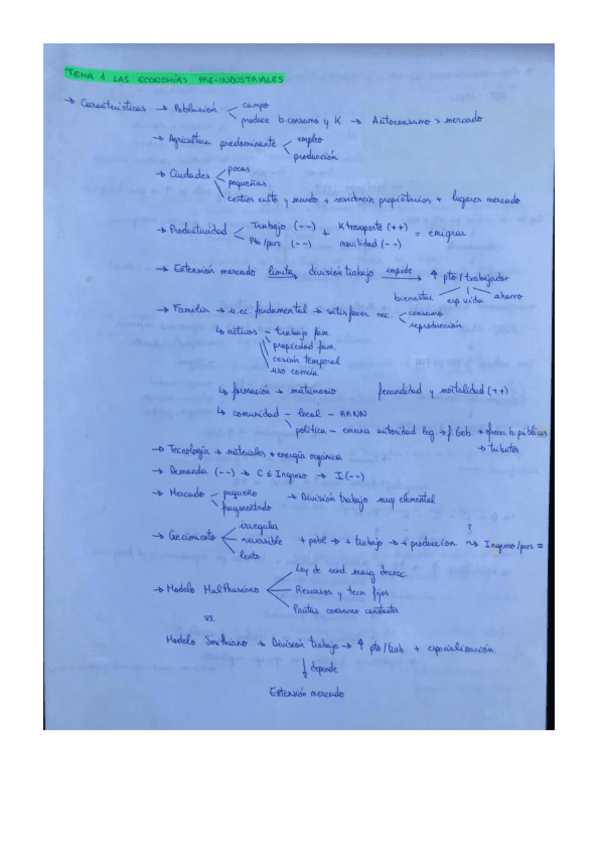 TEMA 1 LAS ECONOMÍAS PRE-INDUSTRIALES
→ Características → Población campo
produce b. consumo y K → Autoconsumo > mercado
→ Agricultura predominante empleo
producción
→ Ciudades pocas
pequeñas
centros culto y mando + residencia propietarios + lugares mercado
→ Productividad Trabajo (--) + K transporte (++) = emigrar
Pto/pers (--) movilidad (--)
→ Extensión mercado limita división trabajo impide ↑ pto/trabajador
bienestar esp vida ahorro
→ Familia → u.ec. fundamental → satisfacer nec. consumo
reproducción
↳ activos - trabajo fam.
propiedad fam.
cesión temporal
uso común
↳ formación → matrimonio fecundidad y mortalidad (++)
↳ comunidad - local - RRNN
política - emana autoridad leg. → f. Gob. + ofrece b. públicos
→ tributos
→ Tecnología → materiales + energía orgánica
→ Demanda (--) → C ≤ Ingreso → I (--)
→ Mercado pequeño → División trabajo muy elemental
fragmentado
→ Crecimiento irregular
reversible + pobl → + trabajo → + produccion ?→ Ingreso/pers =
lento
→ Modelo Malthusiano Ley de rend. marg decrec.
Recursos y tecn fijos
Pautas consumo constantes
vs
Modelo Smithiano → División trabajo → ↑ pto/trab + especialización
↓ depende
Extensión mercado